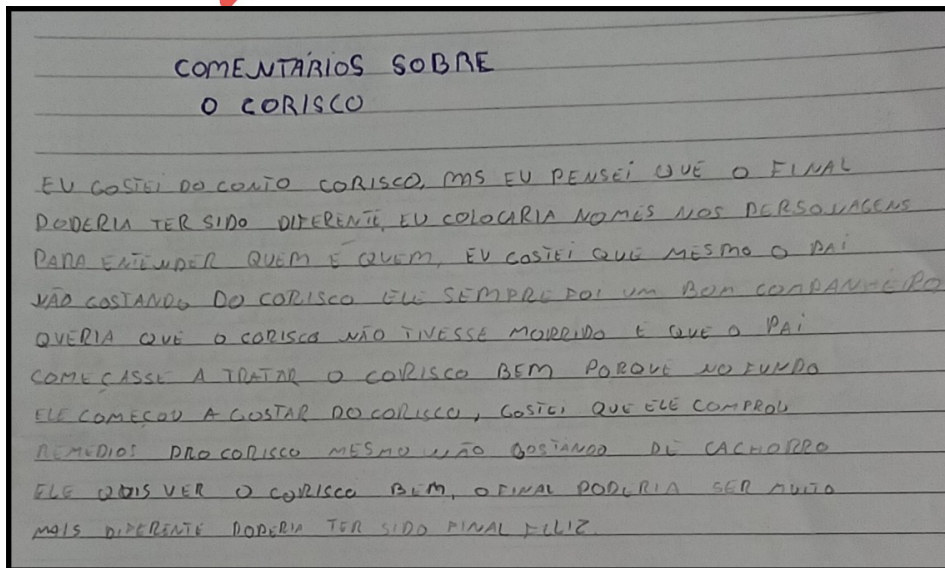 COMENTÁRIOS SOBRE
O CORISCO
EU GOSTEI DO CONTO CORISCO, MS EU PENSEI QUE O FINAL
PODERIA TER SIDO DIFERENTE, EU COLOCARIA NOMES NOS PERSONAGENS
PARA ENTENDER QUEM E QUEM, EU GOSTEI QUE MESMO O PAI
NÃO GOSTANDO DO CORISCO ELE SEMPRE FOI UM BOM COMPANHEIRO
QUERIA QUE O CORISCO NÃO TIVESSE MORRIDO E QUE O PAI
COMEÇASSE A TRATAR O CORISCO BEM PORQUE NO FUNDO
ELE COMEÇOU A GOSTAR DO CORISCO, GOSTEI QUE ELE COMPROU
REMEDIOS PRO CORISCO MESMO NÃO GOSTANDO DE CACHORRO
ELE QUIS VER O CORISCO BEM, O FINAL PODERIA SER MUITO
MAIS DIFERENTE PODERIA TER SIDO FINAL FELIZ.